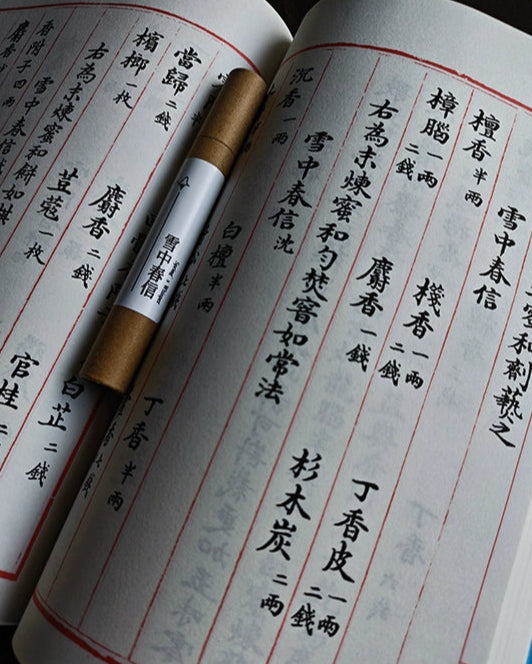 蜜和劑爇之
雪中春信
檀香半兩 棧香一兩二錢 丁香皮一兩二錢
樟腦一兩二錢 麝香一錢 杉木炭二兩
右為末煉蜜和勺焚窨如常法
雪中春信沈
沉香一兩 白檀半兩 丁香半兩
雪中春信
當歸二錢 麝香二錢 白芷二錢
檳榔一枚 荳蔻一枚 官桂二
右為末煉蜜和餅如棋
雪中春信
香附子四兩
麝香